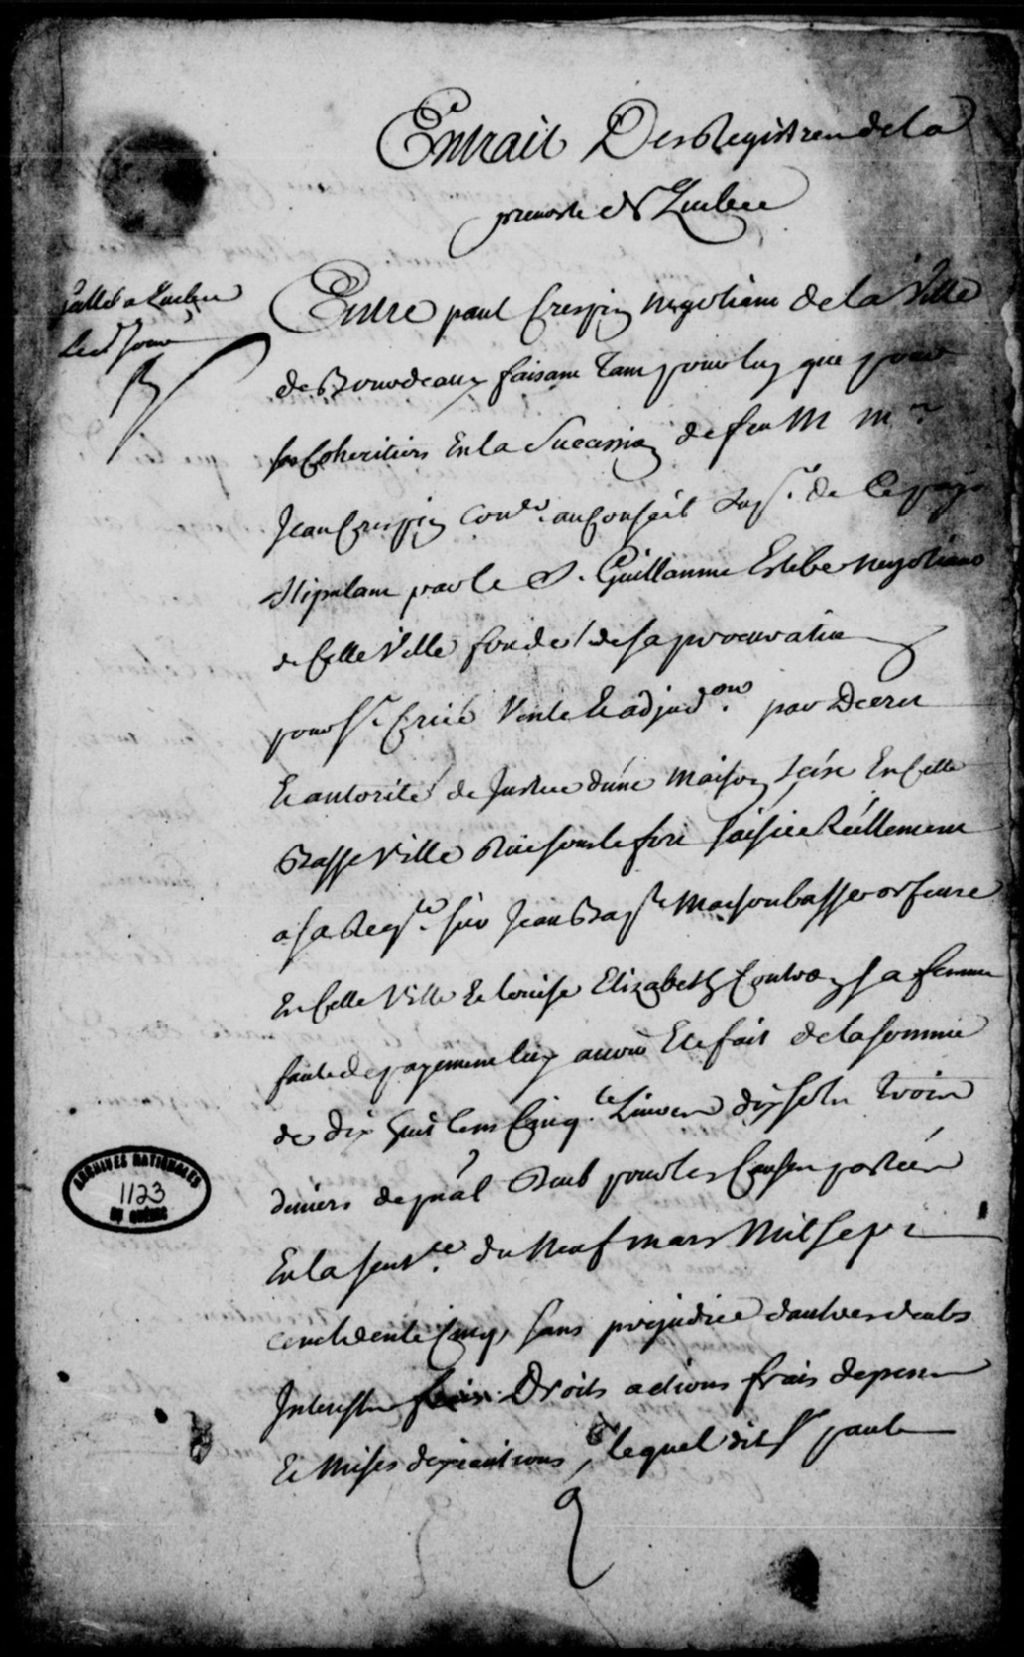 Extrait Des Registres de la
prevosté de Quebec
Collé a Quebec
led. Jour
Entre paul Crespin negotiant de la Ville
de Bourdeaux faisant tant pour luy que pour
ses Coheritiers En la Succession de feu M Mre
Jean Crespin Conler. au Conseil Supr. de Ce pays
stipulant par le Sr. Guillaume Estebe negotiant
de Cette Ville fondé de sa procuration
pourst. Criée Vente et adjudon. par Decret
Et autorité de Justice d'une maison scise En Cette
Basse Ville Rüe sous le fort saisie Réellement
a sa Reqte. sur Jean Bapte Maisonbasse orfevre
En Cette Ville et Louise Elizabeth Contre sa femme
faute de payement luy avoir Eté fait de la somme
de dix huit Cens Cinqte. Livres dix sols trois
deniers de pñal deub pour les Causes portées
En la sentce. du neuf mars mil sept
cent trente Cinq, sans prejudice d'autres deubs
Interests Droits actions frais depens
Et mises d'exécutions, lequel dit Sr paul
ARCHIVES NATIONALES
1123
DU QUÉBEC